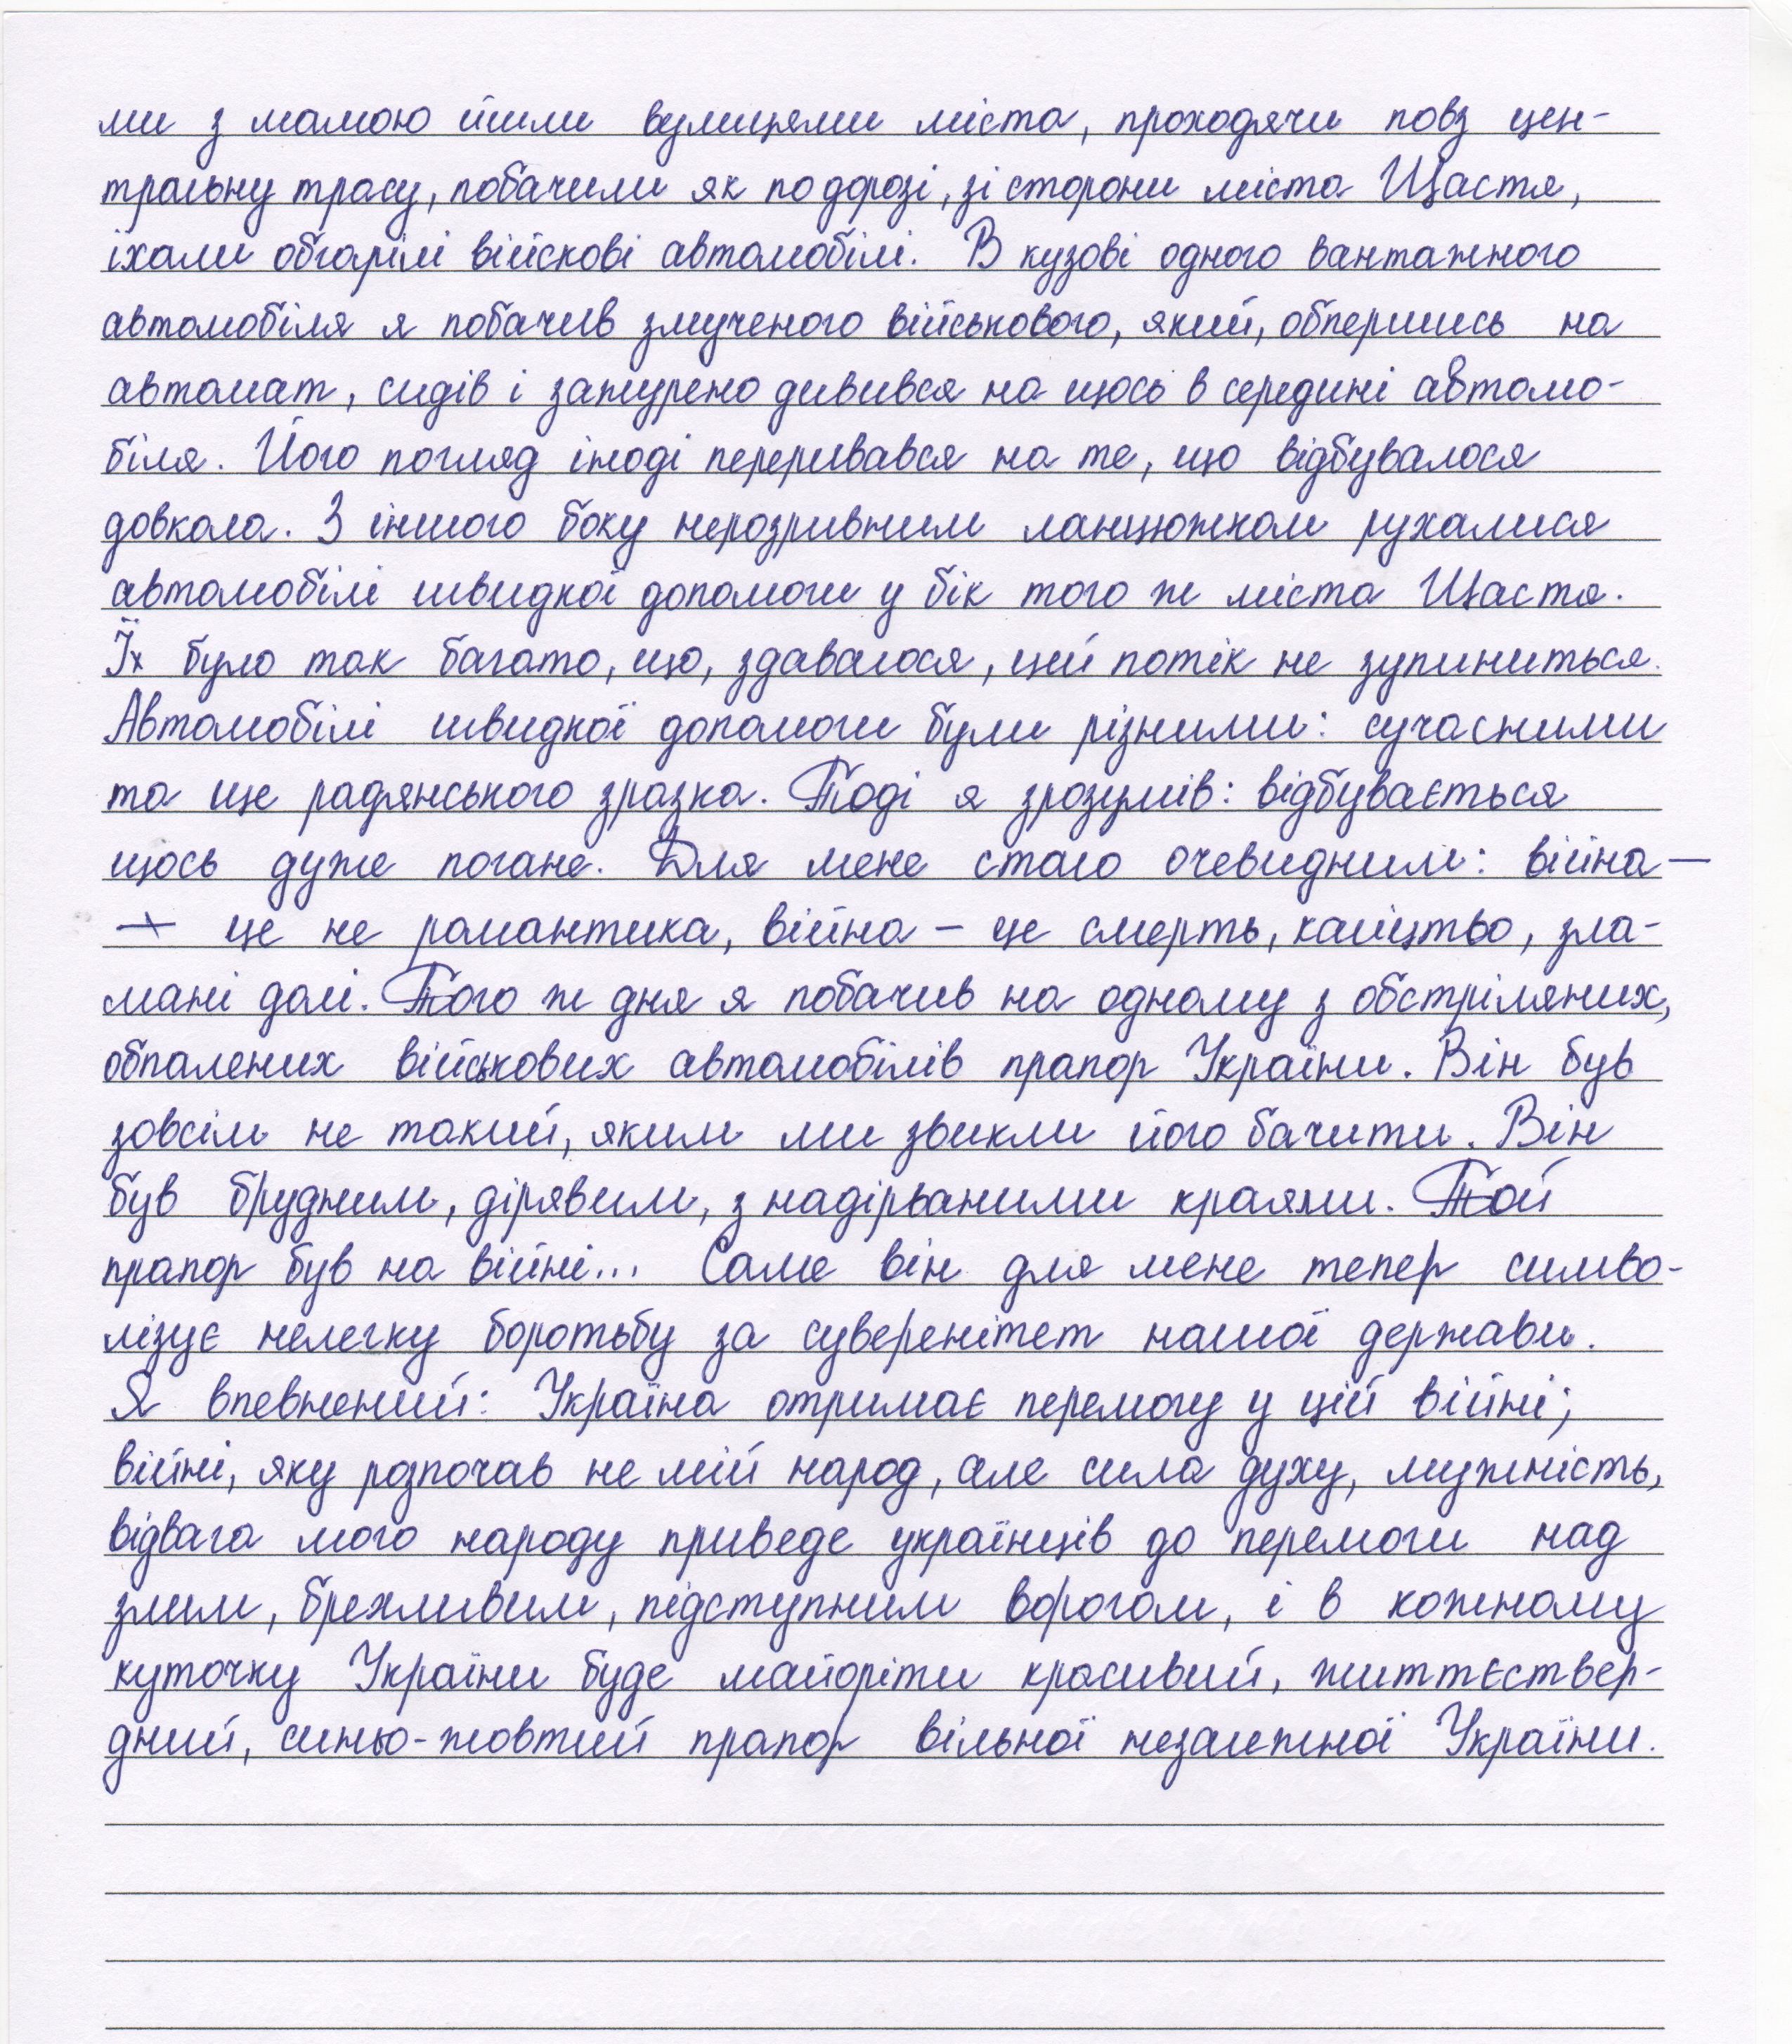 ми з мамою йшли вулицями міста, проходячи повз цен-
тральну трасу, побачили як по дорозі, зі сторони міста Щастя,
їхали обгорілі війскові автомобілі. В кузові одного вантажного
автомобіля я побачив змученого військового, який, обпершись на
автомат, сидів і зажурено дивився на щось в середині автомо-
біля. Його погляд іноді переривався на те, що відбувалося
довкола. З іншого боку нерозривним ланцюжком рухалися
автомобілі швидкої допомоги у бік того ж міста Щастя.
Їх було так багато, що, здавалося, цей потік не зупиниться.
Автомобілі швидкої допомоги були різними: сучасними
та ще радянського зразка. Тоді я зрозумів: відбувається
щось дуже погане. Для мене стало очевидним: війна —
— це не романтика, війна – це смерть, каліцтво, зла-
мані долі. Того ж дня я побачив на одному з обстріляних,
обпалених військових автомобілів прапор України. Він був
зовсім не такий, яким ми звикли його бачити. Він
був брудним, дірявим, з надірваними краями. Той
прапор був на війні... Саме він для мене тепер симво-
лізує нелегку боротьбу за суверенітет нашої держави.
Я впевнений: Україна отримає перемогу у цій війні;
війні, яку розпочав не мій народ, але сила духу, мужність,
відвага мого народу приведе українців до перемоги над
злим, брехливим, підступним ворогом, і в кожному
куточку України буде майоріти красивий, життєствер-
дний, синьо-жовтий прапор вільної незалежної України.